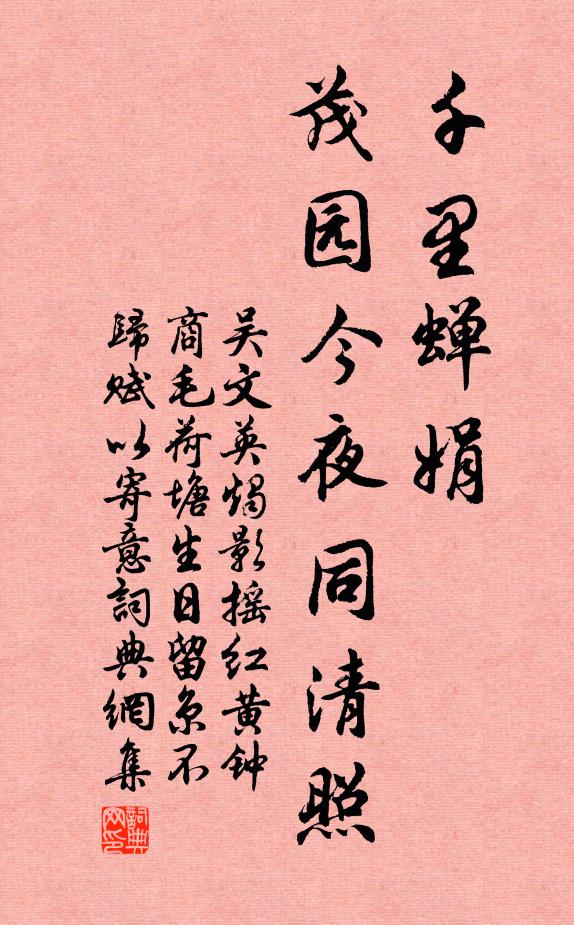 千里蝉娟
茂园今夜同清照
吴文英烛影摇红黄钟
商毛荷塘生日留京不
歸赋以寄意詞典網集
詞典
网印